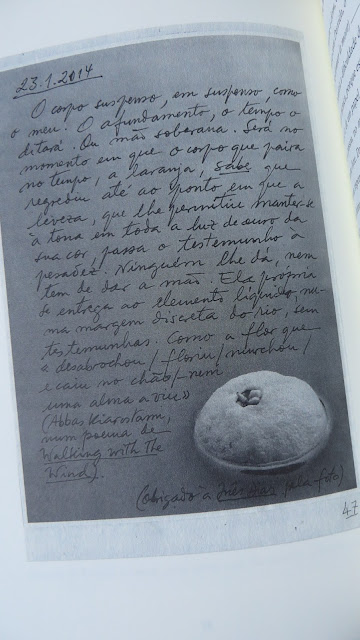 23.1.2014
O corpo suspenso, em suspenso, como
o meu. O afundamento, o tempo o
ditará. Ou mão soberana. Será no
momento em que o corpo que paira
no tempo, a laranja, sabe que
regrediu até ao ponto em que a
leveza, que lhe permitiu manter-se
à tona em toda a luz de ouro da
sua cor, passa o testemunho à
pesadez. Ninguém lhe dá, nem
tem de dar a mão. Ela própria
se entrega ao elemento líquido, nu-
ma margem discreta do rio, sem
testemunhas. Como a flor que
« desabrochou / floriu / murchou /
e caiu no chão / – nem
uma alma a viu»
(Abbas Kiarostami,
num poema de
Walking with the
Wind).
(obrigado à pela foto)
47